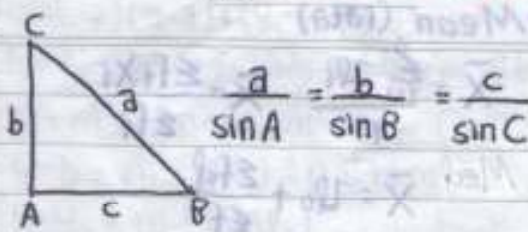 C
b
a
A
c
B
a/sin A = b/sin B = c/sin C